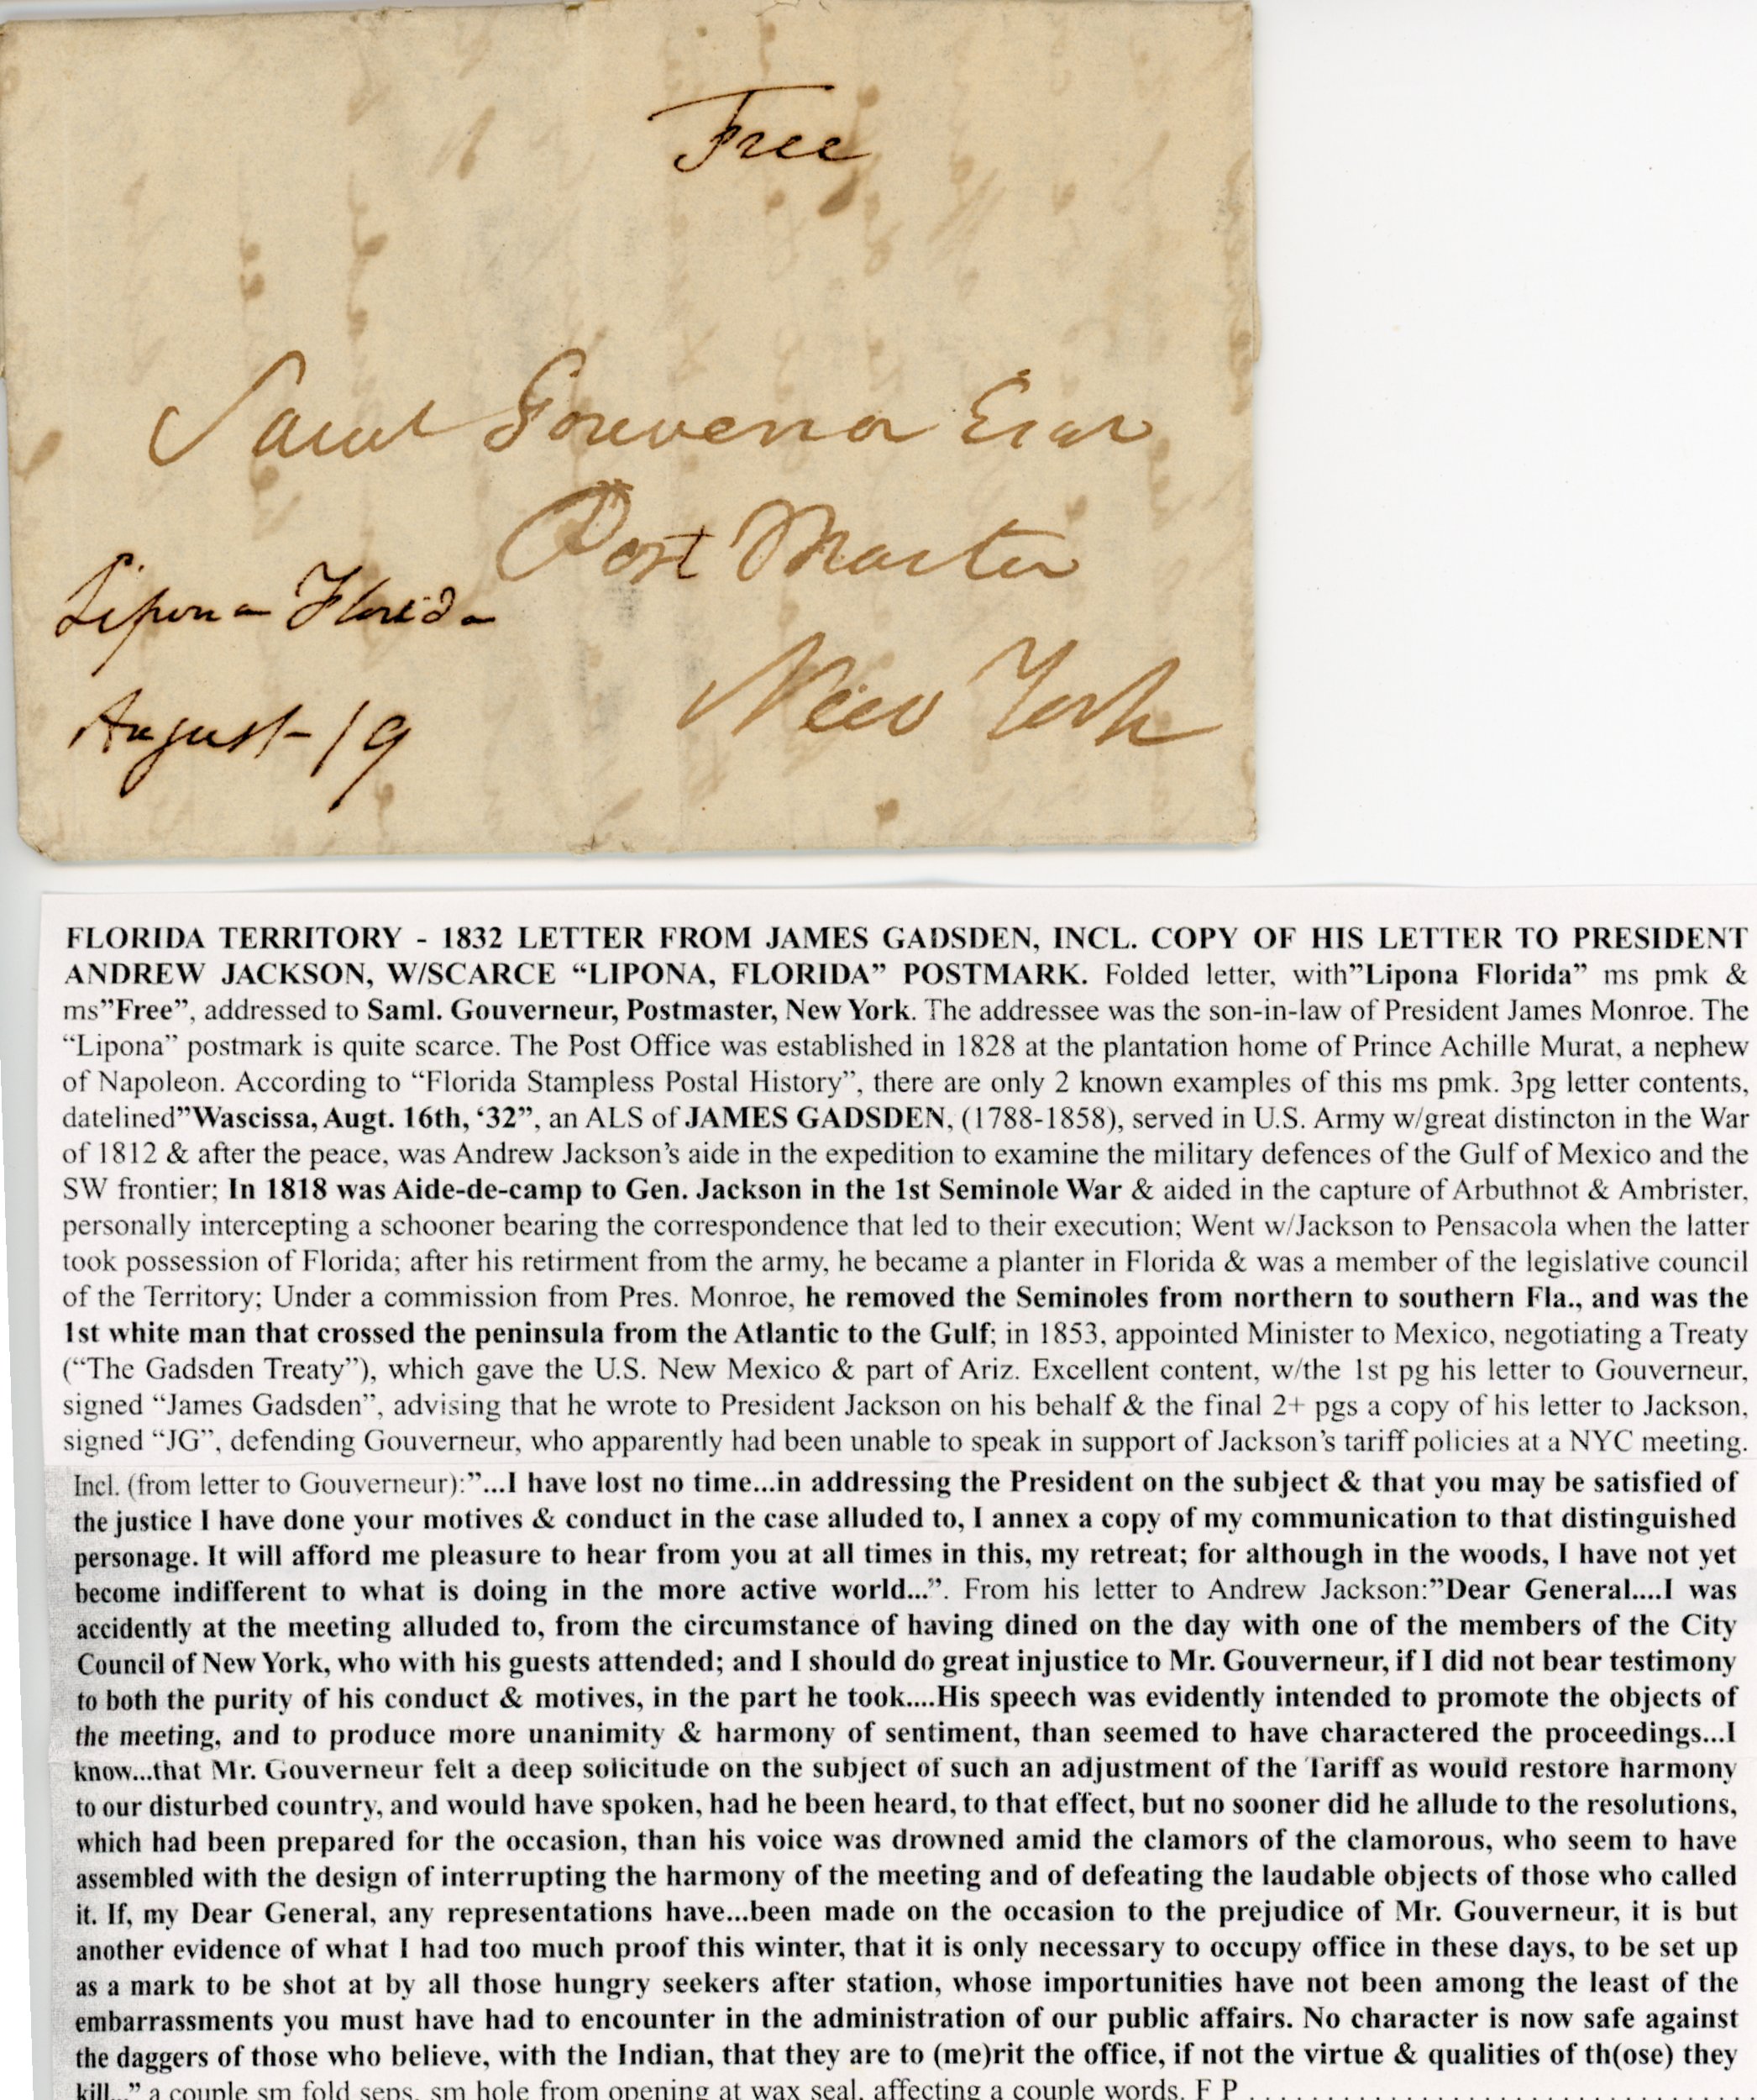 Free
Saml Gouvernor Esqr
Post Master
Lipona Florida
New York
August 19
FLORIDA TERRITORY - 1832 LETTER FROM JAMES GADSDEN, INCL. COPY OF HIS LETTER TO PRESIDENT
ANDREW JACKSON, W/SCARCE “LIPONA, FLORIDA” POSTMARK. Folded letter, with”Lipona Florida” ms pmk &
ms”Free”, addressed to Saml. Gouverneur, Postmaster, New York. The addressee was the son-in-law of President James Monroe. The
“Lipona” postmark is quite scarce. The Post Office was established in 1828 at the plantation home of Prince Achille Murat, a nephew
of Napoleon. According to “Florida Stampless Postal History”, there are only 2 known examples of this ms pmk. 3pg letter contents,
datelined”Wascissa, Augt. 16th, ‘32”, an ALS of JAMES GADSDEN, (1788-1858), served in U.S. Army w/great distincton in the War
of 1812 & after the peace, was Andrew Jackson’s aide in the expedition to examine the military defences of the Gulf of Mexico and the
SW frontier; In 1818 was Aide-de-camp to Gen. Jackson in the 1st Seminole War & aided in the capture of Arbuthnot & Ambrister,
personally intercepting a schooner bearing the correspondence that led to their execution; Went w/Jackson to Pensacola when the latter
took possession of Florida; after his retirment from the army, he became a planter in Florida & was a member of the legislative council
of the Territory; Under a commission from Pres. Monroe, he removed the Seminoles from northern to southern Fla., and was the
1st white man that crossed the peninsula from the Atlantic to the Gulf; in 1853, appointed Minister to Mexico, negotiating a Treaty
(“The Gadsden Treaty”), which gave the U.S. New Mexico & part of Ariz. Excellent content, w/the 1st pg his letter to Gouverneur,
signed “James Gadsden”, advising that he wrote to President Jackson on his behalf & the final 2+ pgs a copy of his letter to Jackson,
signed “JG”, defending Gouverneur, who apparently had been unable to speak in support of Jackson’s tariff policies at a NYC meeting.
Incl. (from letter to Gouverneur):”...I have lost no time...in addressing the President on the subject & that you may be satisfied of
the justice I have done your motives & conduct in the case alluded to, I annex a copy of my communication to that distinguished
personage. It will afford me pleasure to hear from you at all times in this, my retreat; for although in the woods, I have not yet
become indifferent to what is doing in the more active world...”. From his letter to Andrew Jackson:”Dear General....I was
accidently at the meeting alluded to, from the circumstance of having dined on the day with one of the members of the City
Council of New York, who with his guests attended; and I should do great injustice to Mr. Gouverneur, if I did not bear testimony
to both the purity of his conduct & motives, in the part he took....His speech was evidently intended to promote the objects of
the meeting, and to produce more unanimity & harmony of sentiment, than seemed to have charactered the proceedings...I
know...that Mr. Gouverneur felt a deep solicitude on the subject of such an adjustment of the Tariff as would restore harmony
to our disturbed country, and would have spoken, had he been heard, to that effect, but no sooner did he allude to the resolutions,
which had been prepared for the occasion, than his voice was drowned amid the clamors of the clamorous, who seem to have
assembled with the design of interrupting the harmony of the meeting and of defeating the laudable objects of those who called
it. If, my Dear General, any representations have...been made on the occasion to the prejudice of Mr. Gouverneur, it is but
another evidence of what I had too much proof this winter, that it is only necessary to occupy office in these days, to be set up
as a mark to be shot at by all those hungry seekers after station, whose importunities have not been among the least of the
embarrassments you must have had to encounter in the administration of our public affairs. No character is now safe against
the daggers of those who believe, with the Indian, that they are to (me)rit the office, if not the virtue & qualities of th(ose) they
kill...” a couple sm fold seps, sm hole from opening at wax seal, affecting a couple words, F P